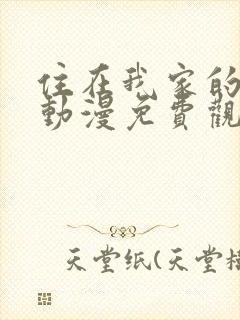 住在我家的
動漫免費觀
天堂纸(天堂